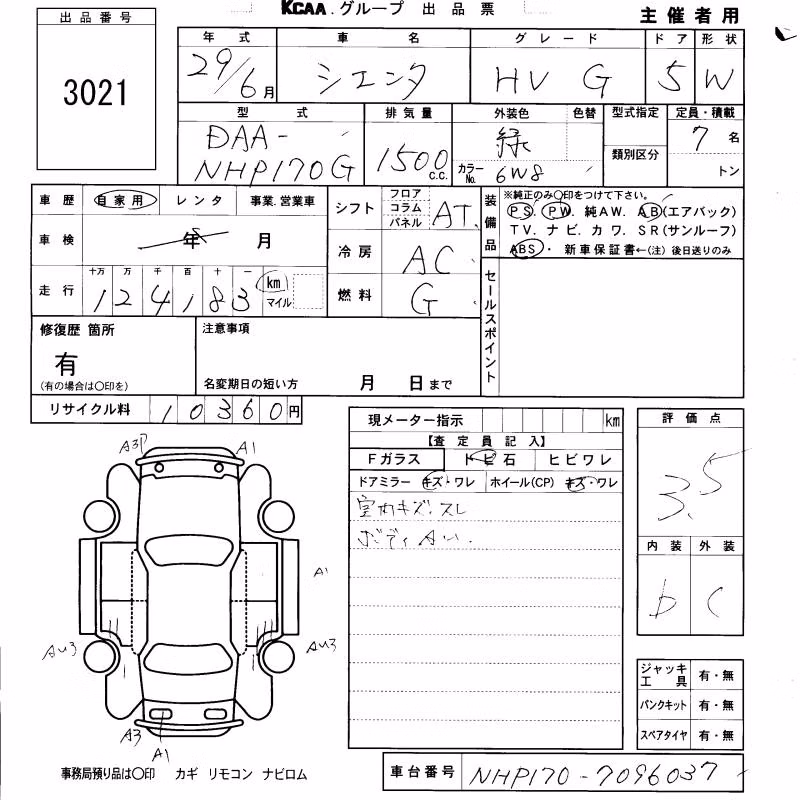 KCAA.グループ 出品票
主催者用
出品番号
3021
年式 車名 グレード ドア 形状
29/6月 シエンタ HV G 5 W
型式 排気量 外装色 色替 型式指定 定員・積載
DAA-NHP170G 1500c.c. 緑 7名
カラーNo. 6W8 類別区分 トン
車歴 自家用 レンタ 事業.営業車
車検 年 月
走行 十万 万 千 百 十 一
124183 km マイル
シフト フロア コラム パネル AT
冷房 AC
燃料 G
装備品 ※純正のみ○印をつけて下さい。
PS. PW. 純AW. AB(エアバック)
TV. ナビ. カワ. SR(サンルーフ)
ABS・ 新車保証書←(注) 後日送りのみ
セールスポイント
修復歴 箇所
有
(有の場合は○印を)
注意事項
名変期日の短い方 月 日まで
リサイクル料 10360円
現メーター指示 km
【査定員記入】
Fガラス トビ石 ヒビワレ
ドアミラー キズ・ワレ ホイール(CP) キズ・ワレ
室内キズ.スレ
ボディAU.
評価点
3.5
内装 外装
D C
A3P A1
A1
AU3 AU3
A3
A1
ジャッキ工具 有・無
パンクキット 有・無
スペアタイヤ 有・無
事務局預り品は○印 カギ リモコン ナビロム
車台番号 NHP170-7096037